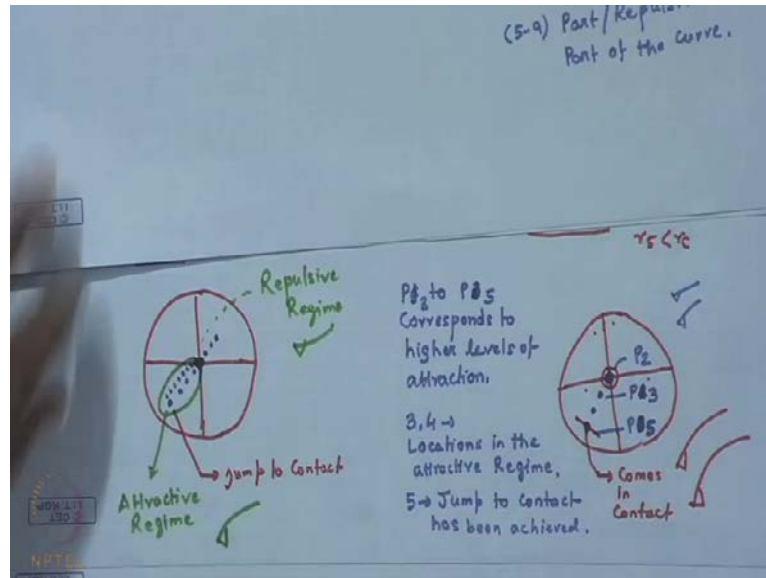 (5-9) Part/Repul
Part of the curve.
r5 < rc
Repulsive
Regime
Jump to Contact
Attractive
Regime
P2 to P5
Corresponds to
higher levels of
attraction.
3,4 →
Locations in the
attractive Regime.
5 → Jump to contact
has been achieved.
P2
P3
P5
Comes
in
Contact
© CET
I.I.T. KGP
NPTEL